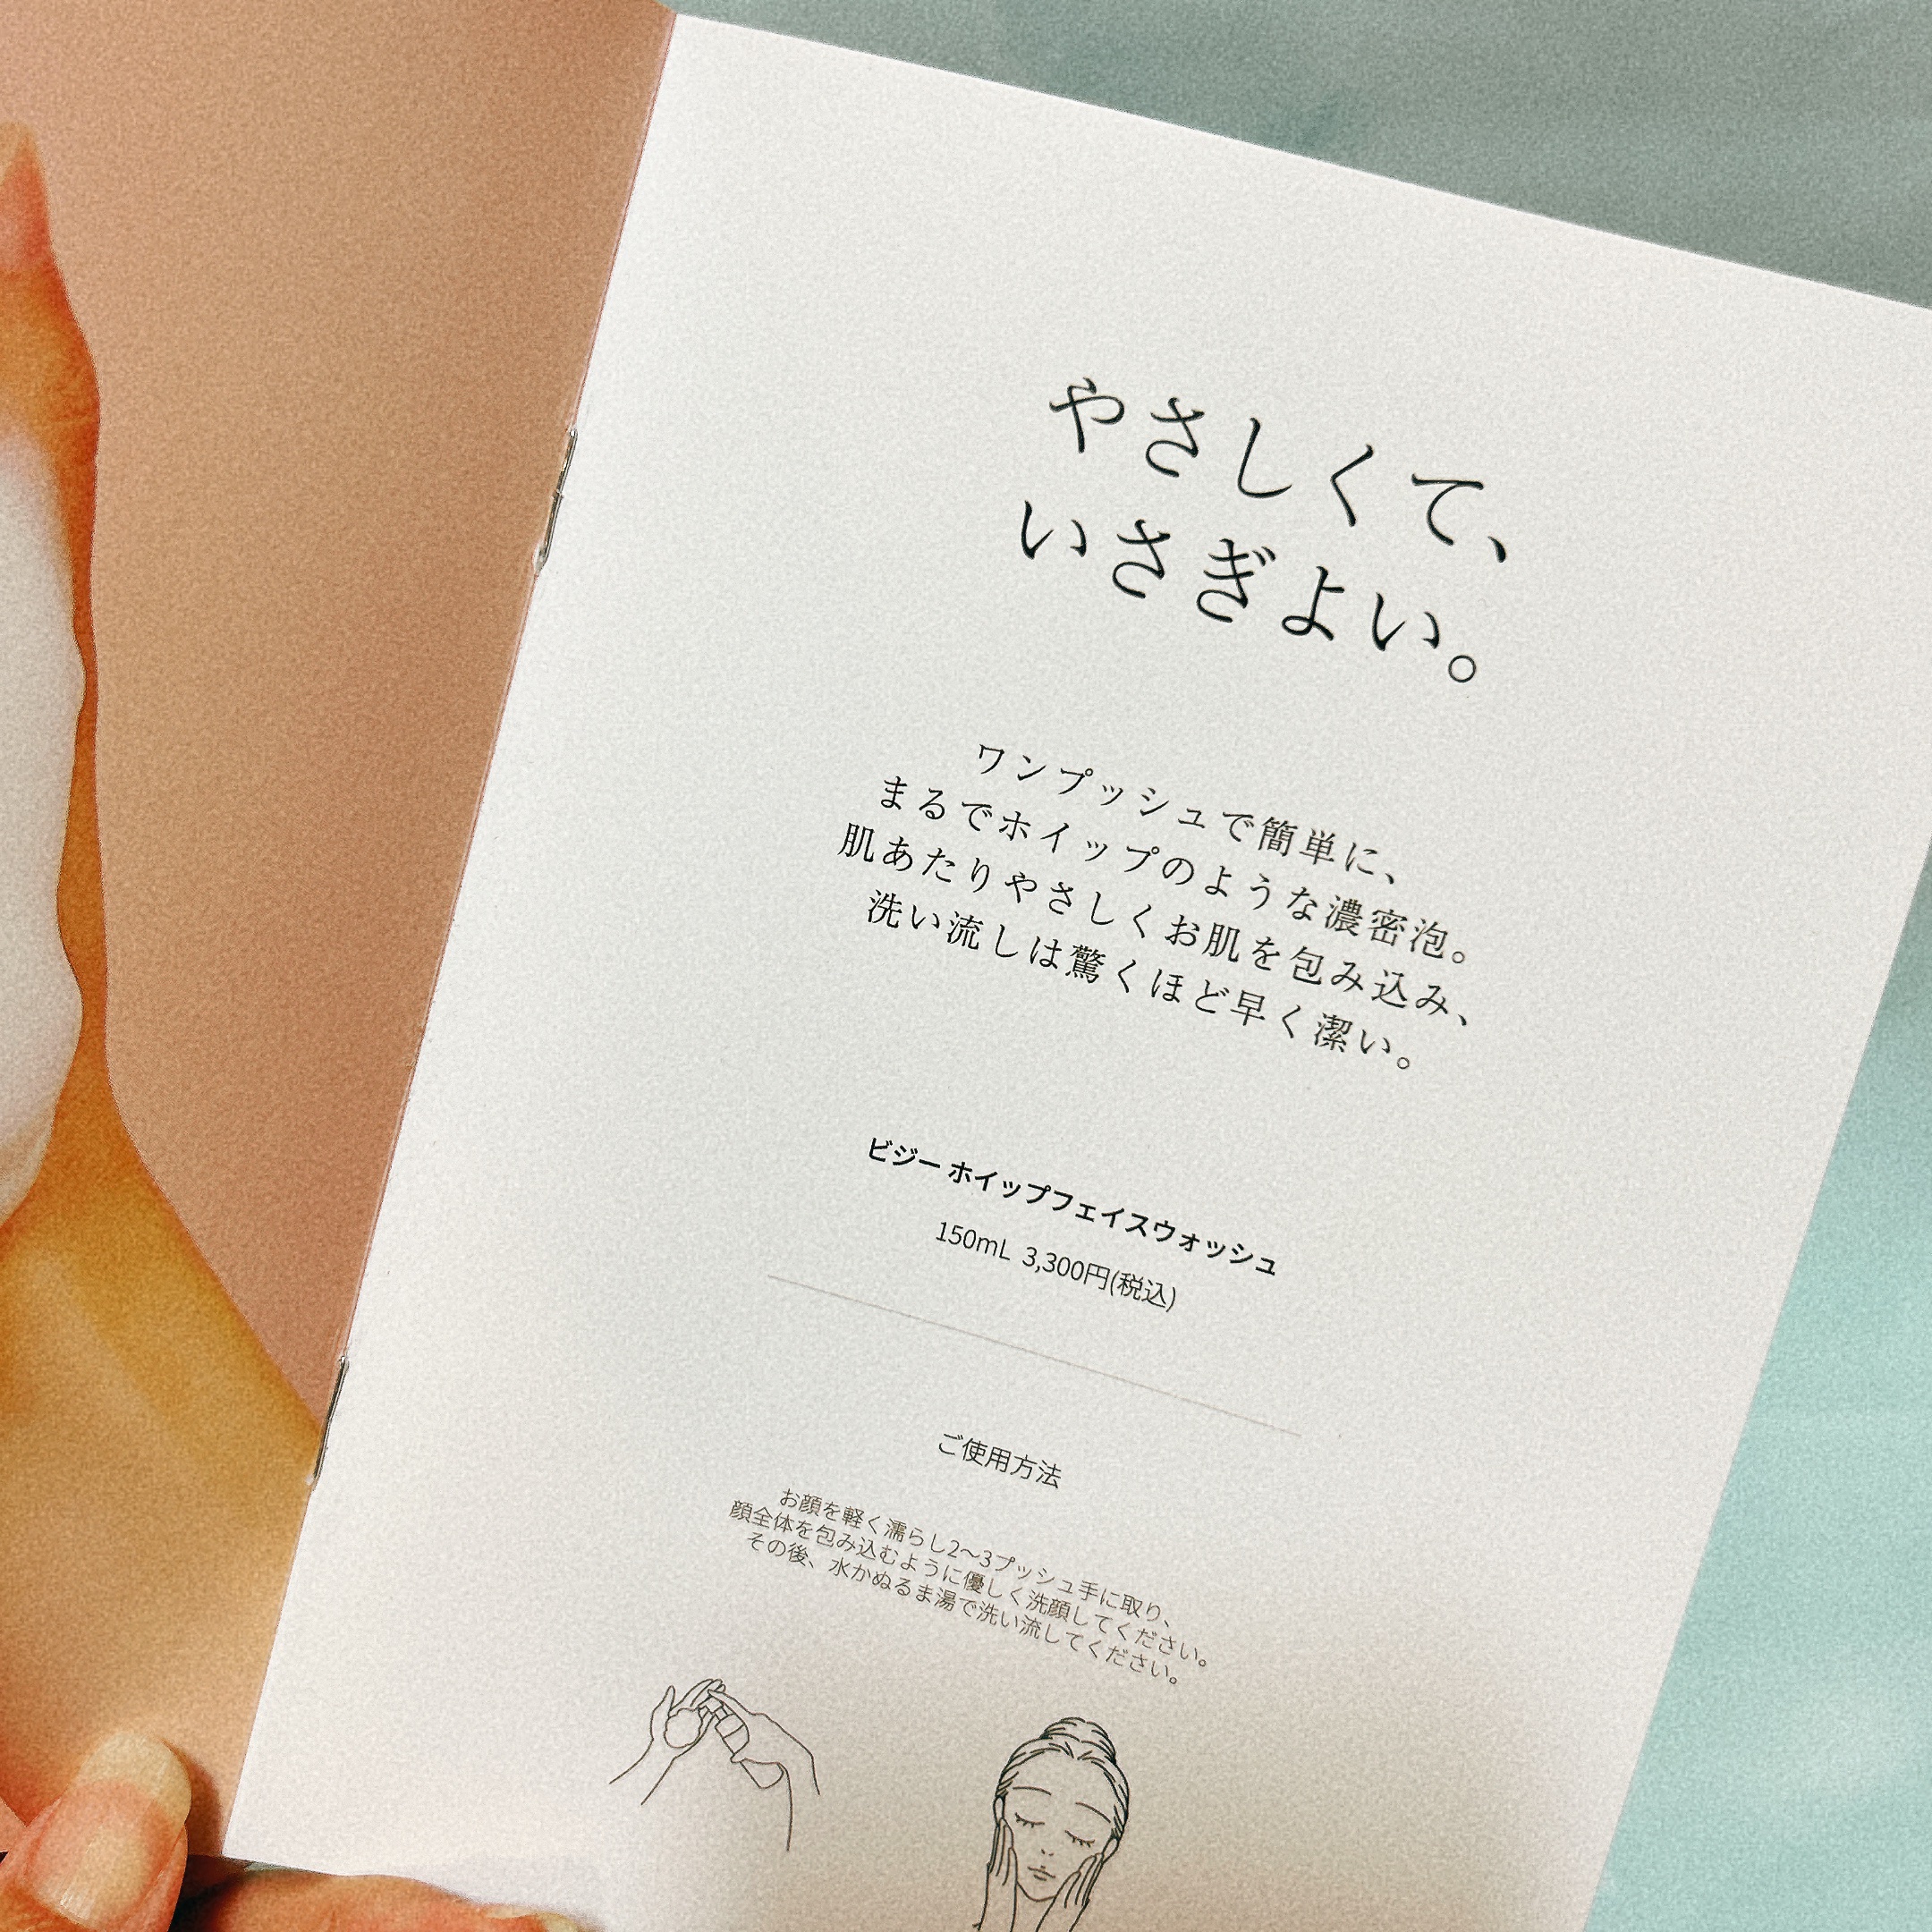 やさしくて、
いさぎよい。
ワンプッシュで簡単に、
まるでホイップのような濃密泡。
肌あたりやさしくお肌を包み込み、
洗い流しは驚くほど早く潔い。
ビジー ホイップフェイスウォッシュ
150mL 3,300円(税込)
ご使用方法
お顔を軽く濡らし2〜3プッシュ手に取り、
顔全体を包み込むように優しく洗顔してください。
その後、水かぬるま湯で洗い流してください。